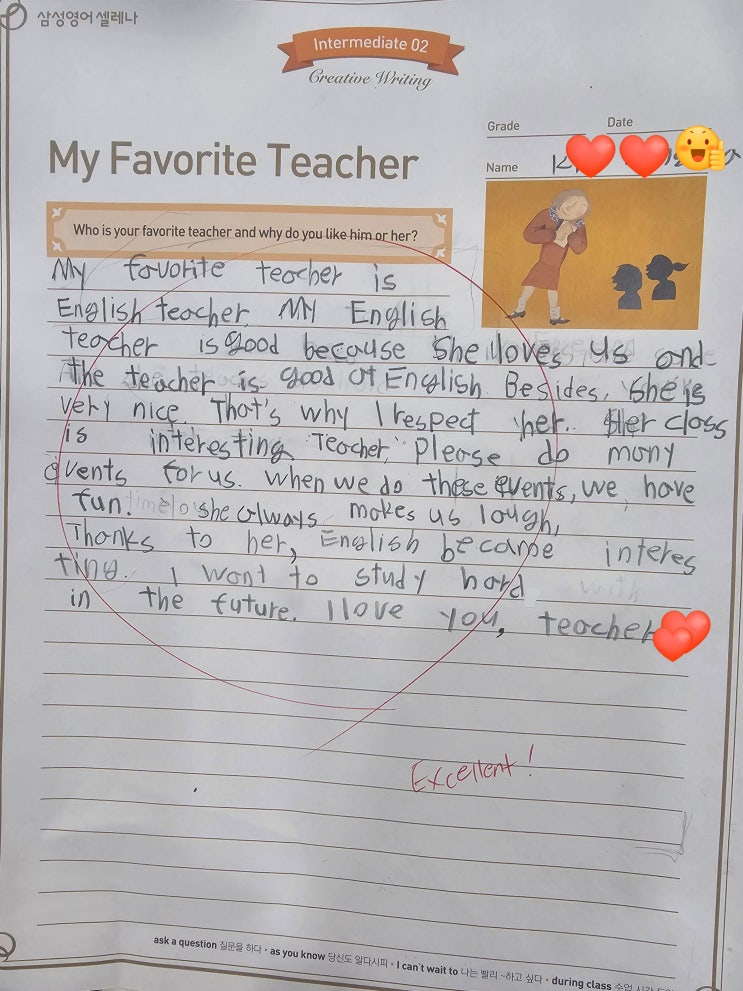 삼성영어 셀레나
Intermediate 02
Creative Writing
Grade
Date
My Favorite Teacher
Name
Who is your favorite teacher and why do you like him or her?
My favorite teacher is
English teacher. My English
teacher is good because she loves us and
the teacher is good at English Besides, she is
very nice. That's why I respect her. Her class
is interesting. Teacher, Please do many
events for us. when we do these events, we have
fun. she always makes us laugh,
Thanks to her, English became interes
ting. I want to study hard
in the future. I love you, teacher
Excellent!
ask a question 질문을 하다 • as you know 당신도 알다시피 • I can't wait to 나는 빨리 ~하고 싶다 • during class 수업 시간